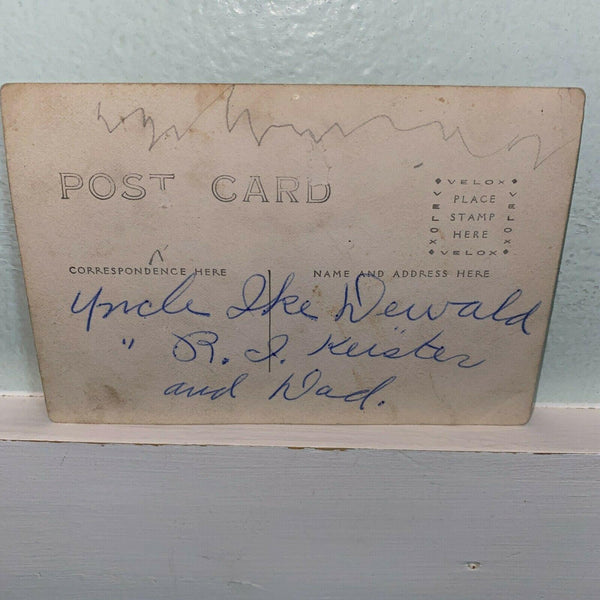 POST CARD
VELOX
VELOX
VELOX
PLACE
STAMP
HERE
VELOX
CORRESPONDENCE HERE
NAME AND ADDRESS HERE
Uncle Ike Dewald
" R. I. Keister
and Dad.